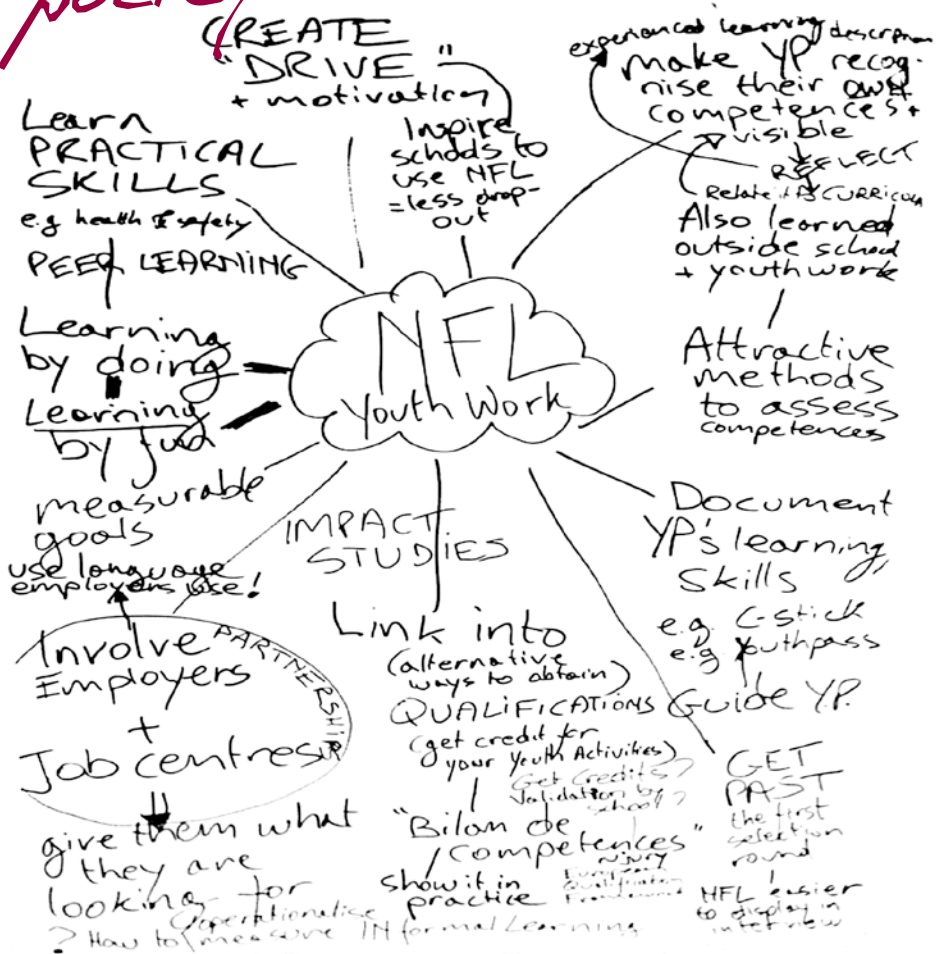 CREATE
"DRIVE"
+ motivation
Inspire
schools to
use NFL
=less drop-
out
experienced learning description
make YP recog-
nise their own
competences +
visible
REFLECT
Relate it to CURRICULA
Also learned
outside school
+ youthwork
Learn
PRACTICAL
SKILLS
e.g health & safety
PEER LEARNING
Learning
by doing
Learning
by fun
NFL
Youth Work
Attractive
methods
to assess
competences
measurable
goals
use language
employers use!
IMPACT
STUDIES
Document
YP's learning,
Skills
e.g. C-stick
e.g. Youthpass
Guide Y.P.
Involve
Employers
+
Job centres
PARTNERSHIP
give them what
they are
looking for
Link into
(alternative
ways to obtain)
QUALIFICATIONS
(get credit for
your Youth Activities)
Get Credits?
Validation by
school?
"Bilan de
competences"
show it in
practice
European
Qualification
Framework
GET
PAST
the first
selection
round
NFL easier
to display in
interview
Operationalise
? How to (measure INformal Learning